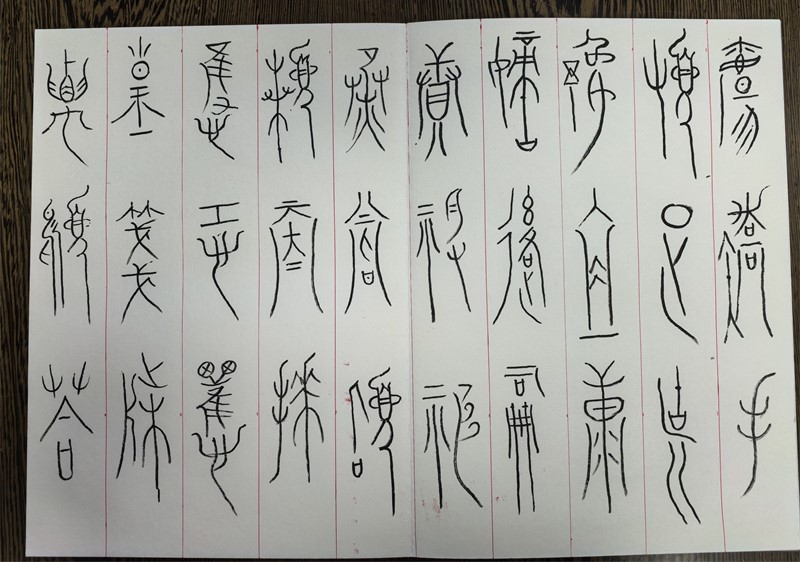 觴矯手
頓足悦
豫且康
嫡後嗣
續祭祀
烝嘗稽
顙再拜
悚恐懼
惶箋牒
要顧答